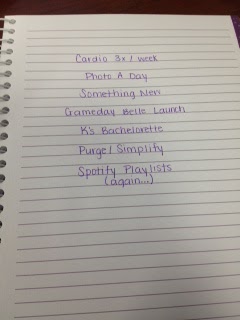 Cardio 3x / week
Photo A Day
Something New
Gameday Belle Launch
K's Bachelorette
Purge / Simplify
Spotify Playlists
(again...)